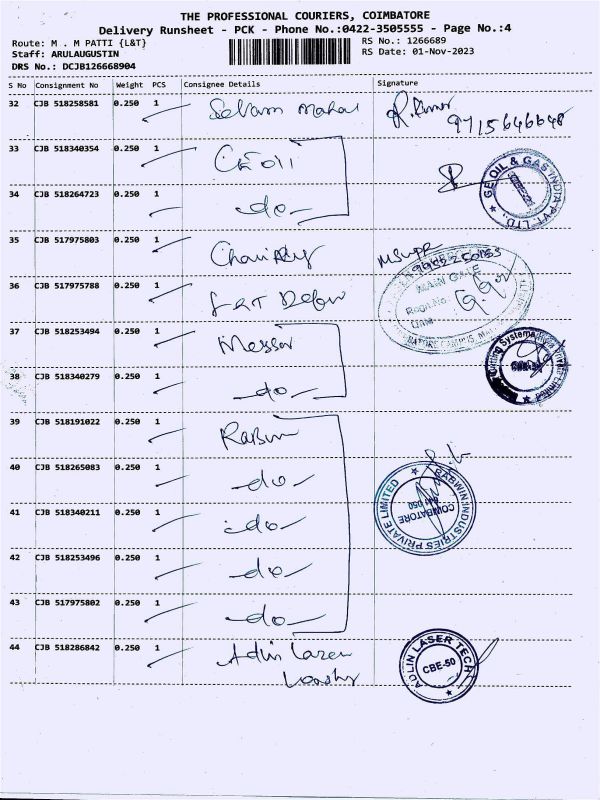 THE PROFESSIONAL COURIERS, COIMBATORE
Delivery Runsheet - PCK - Phone No.:0422-3505555 - Page No.:4
Route: M . M PATTI {L&T}
RS No.: 1266689
Staff: ARULAUGUSTIN
RS Date: 01-Nov-2023
DRS No.: DCJB126668904
S No Consignment No Weight PCS Consignee Details Signature
32 CJB 518258581 0.250 1 Selvam Mahal
9715646648
33 CJB 518340354 0.250 1
GE OIL & GAS INDIA PVT. LTD.
34 CJB 518264723 0.250 1 -do-
35 CJB 517975803 0.250 1
36 CJB 517975788 0.250 1
MAIN GATE
37 CJB 518253494 0.250 1 Messer
Cutting Systems Private Limited
38 CJB 518340279 0.250 1 -do-
39 CJB 518191022 0.250 1
40 CJB 518265083 0.250 1 -do-
RABWIN INDUSTRIES PRIVATE LIMITED
COIMBATORE
641 050
41 CJB 518340211 0.250 1 -do-
42 CJB 518253496 0.250 1 -do-
43 CJB 517975802 0.250 1 -do-
44 CJB 518286842 0.250 1 Adlin Lazer
ADLIN LASER TECH
CBE-50